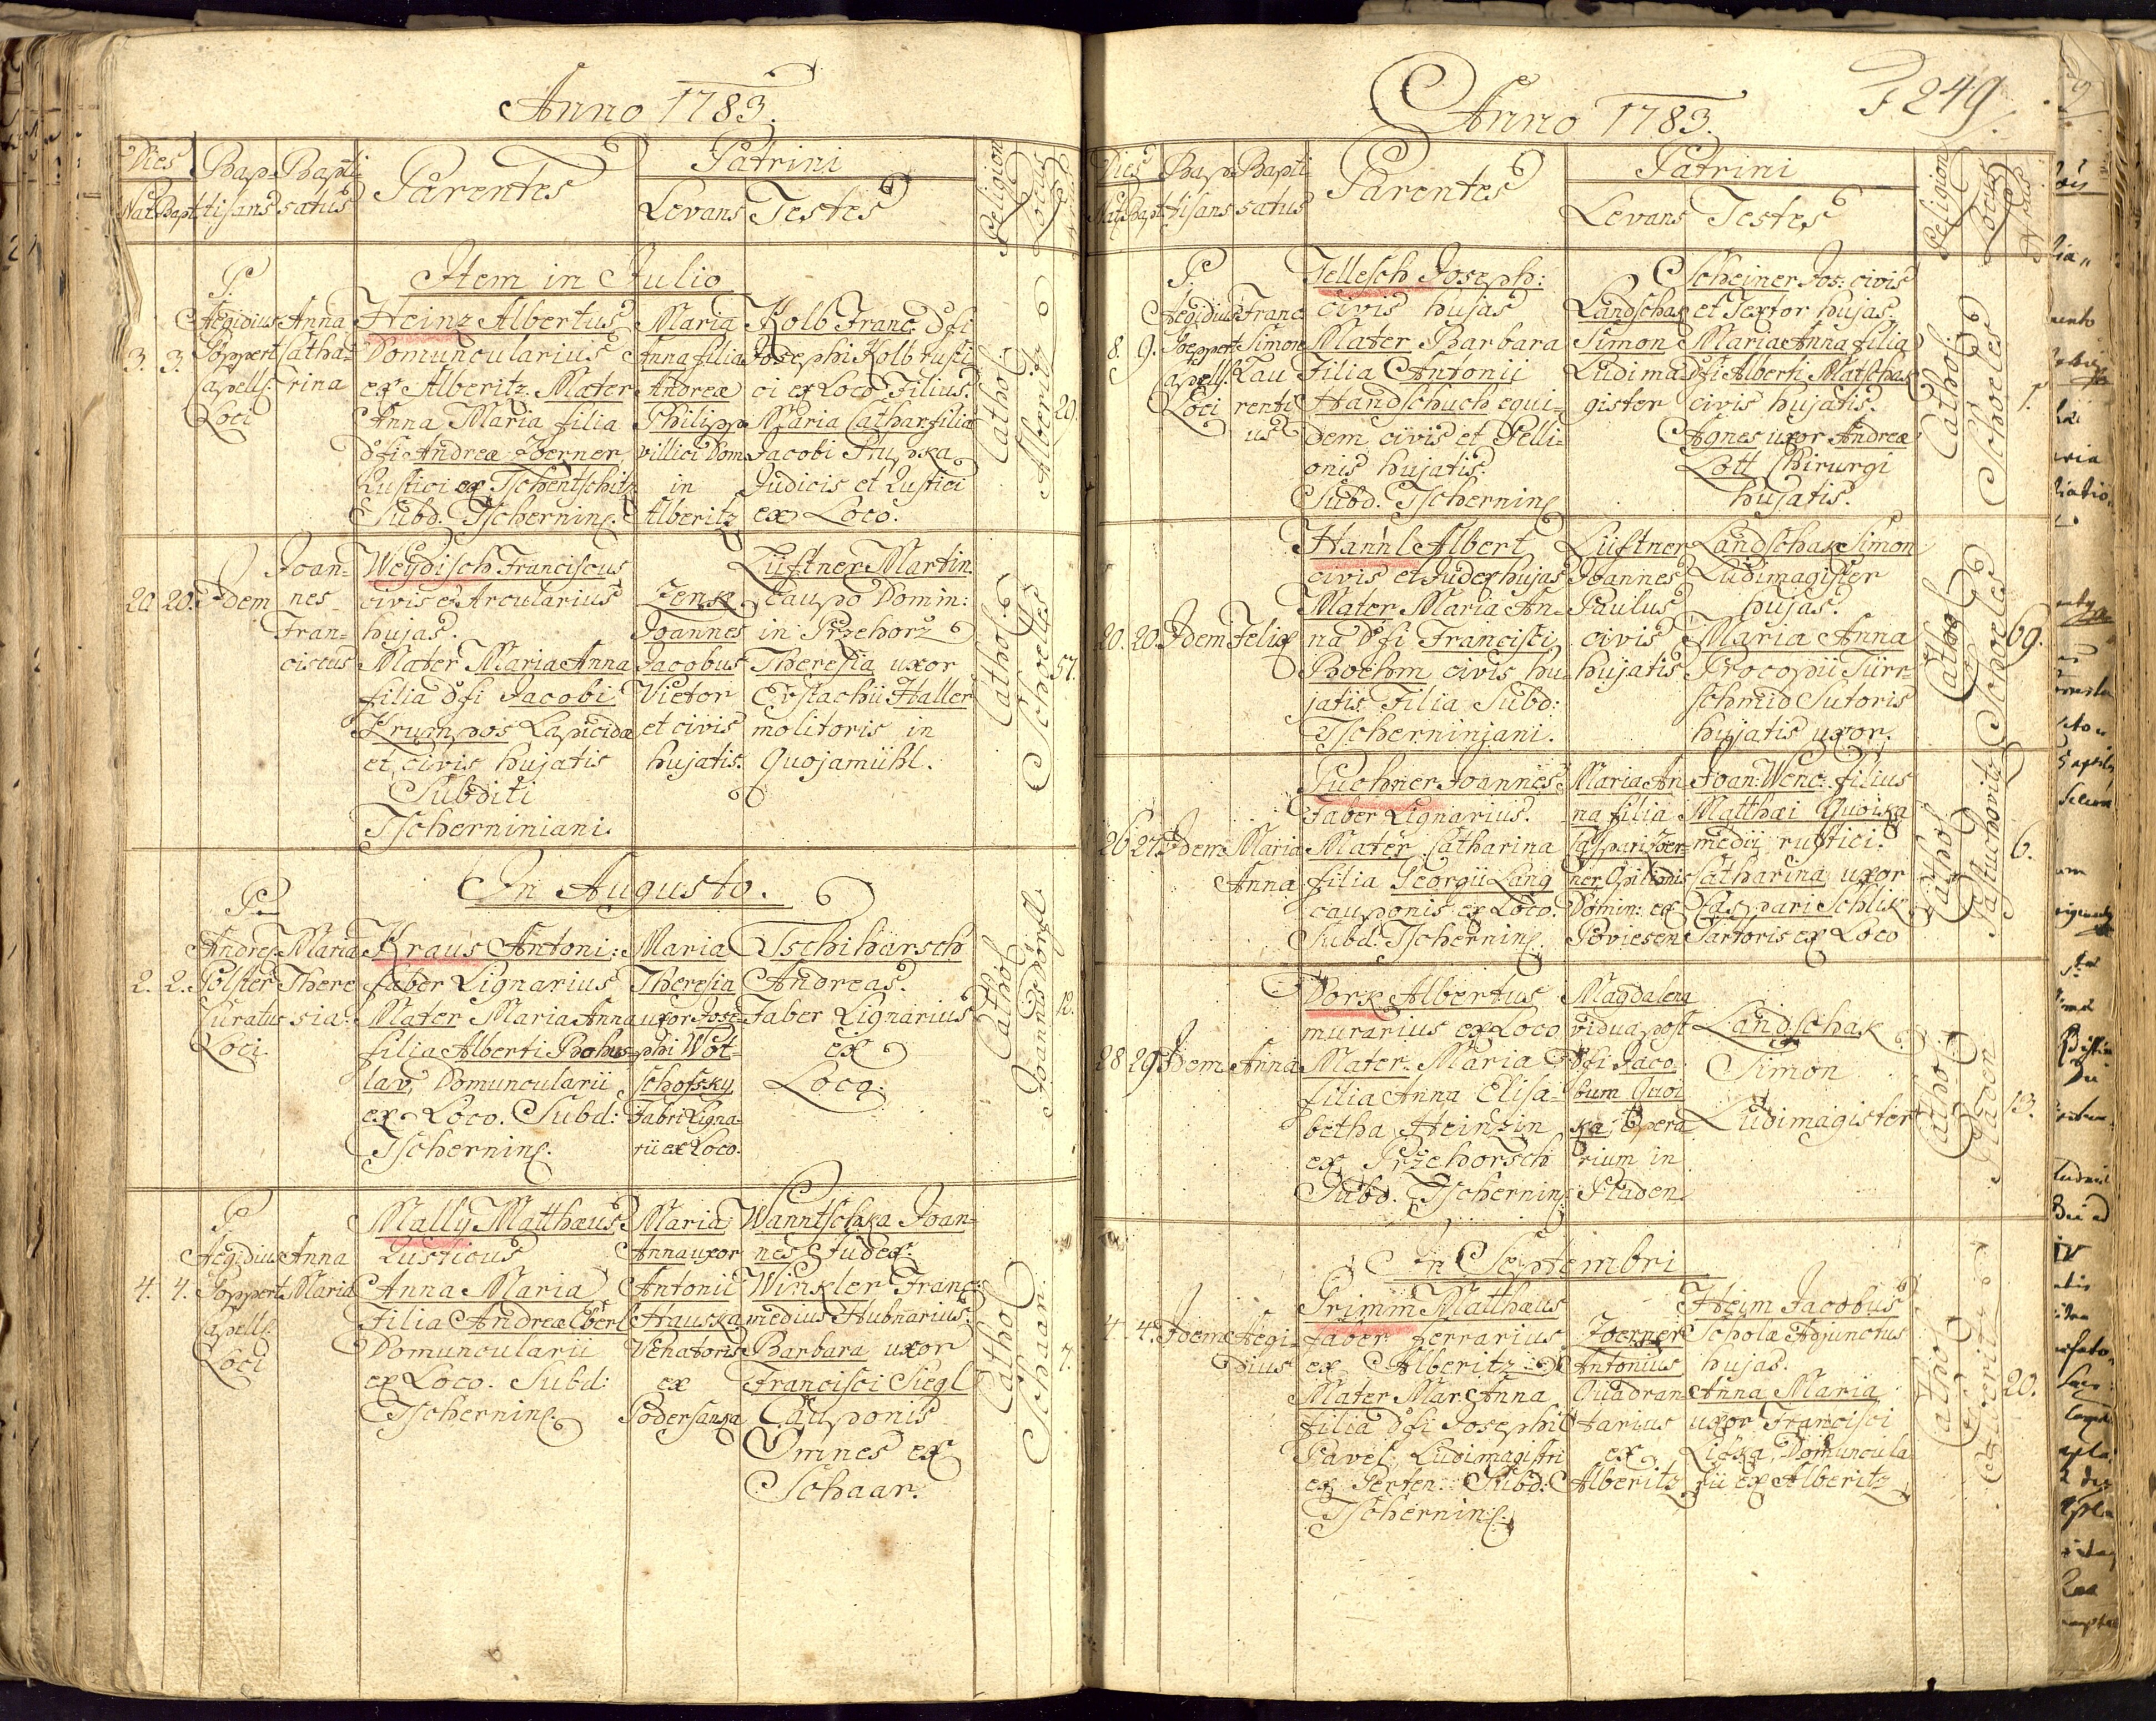 Anno 1783.
Dies
Nat. Bapt.
Bap-
tisans
Bapti
satus
Parentes
Patrini
Levans
Testes
Religion
Locus
Item in Julio
3. 3.
P.
Aegidius
Poppert
Capell.
Loci
Anna
Catha-
rina
Heinz Albertus
Domuncularius
ex Alberitz. Mater
Anna Maria filia
dfi Andreæ Zoerner
Rustici ex Tschentschitz
Subd. Tschernin.
Maria
Anna filia
Andreæ
Philipp
villici Dom.
in
Alberitz
Kolb Franc. dfi
Josephi Kolb rusti
ci ex Loco Filius.
Maria Cathar. filia
Jacobi Stupka
Judicis et Rustici
ex Loco.
Cathol.
Alberitz
20.
20. 20.
Idem
Joan-
nes
Fran-
ciscus
Weydisch Franciscus
civis et Arcularius
hujas.
Mater Maria Anna
filia dfi Jacobi
Krumpos Lapicidæ
et civis hujatis
Subditi
Tscherniniani.
Zenk
Joannes
Jacobus
Vietor
et civis
hujatis.
Lüftner Martin.
Caupo Domin:
in Przehorz
Theresia uxor
Eustachii Haller
molitoris in
Quojamühl.
Cathol.
Schoelles
57.
In Augusto.
2. 2.
P.
Andreas
Polster
Curatus
Loci
Maria
There
sia.
Kraus Antoni:
faber Lignarius
Mater Maria Anna
filia Alberti Bohus-
lav, Domuncularii
ex Loco. Subd:
Tschernin.
Maria
Theresia
uxor Jose-
phi Wot-
schofsky
Fabri Ligna-
rii ex Loco.
Tschiharsch
Andreas.
Faber Lignarius
ex
Loco.
Cathol
Joannesdörfl.
12.
4. 4.
P.
Aegidius
Poppert
Capell.
Loci
Anna
Maria
Mally Matthæus
Rusticus
Anna Maria
Filia Andreæ Eberl
Domuncularii
ex Loco. Subd:
Tschernin.
Maria
Anna uxor
Antonii
Hauska
Venatoris
ex
Podersanka
Wanntschka Joan-
nes Judex.
Winkler Franc:
medius Hubnarius.
Barbara uxor
Francisci Siegl
Cauponis
Omnes ex
Schaar.
Cathol
Schaar.
7.
249.
Anno 1783.
Dies
Nat. Bapt.
Bap-
tisans
Bapti
satus
Parentes
Patrini
Levans
Testes
Religion
Locus
Nrus
8. 9.
P.
Aegidius
Poppert
Capell.
Loci
Franc.
Simon
Lau
renti
us
Jellesch Joseph:
civis hujas
Mater Barbara
Filia Antonii
Handschuch equi-
dem civis et Pelli-
onis hujatis.
Subd. Tschernin.
Landschak
Simon
Ludima-
gister
Scheiner Jos: civis
et Textor hujas.
Maria Anna filia
dfi Alberti Matschak
civis hujatis.
Agnes uxor Andreæ
Lott Chirurgi
hujatis.
Cathol
Schoeles
1.
20. 20.
Idem
Felix
Hannl Albert
civis et Judex hujas
Mater Maria An-
na dfi Francisci
Boehm civis hu-
jatis Filia Subd:
Tscherniniani.
Lüftner
Joannes
Paulus
civis
hujatis
Landschak Simon
Ludimagister
hujas.
Maria Anna
Procopii Türr-
schmid Sutoris
hujatis uxor.
Cathol
Schoeles
69.
26 27.
Idem
Maria
Anna
Puchner Joannes
Faber Lignarius.
Mater Catharina
filia Georgii Lang
cauponis ex Loco.
Subd. Tschernin.
Maria An
na filia
Caspari Zoer-
ner Opilionis
Domin: ex
Poviesen
Joan: Wenc: filius
Matthæi Quoika
medii rustici.
Catharina uxor
Caspari Schlik
Sartoris ex Loco
Cathol
Pastuchovitz
6.
28 29
Idem
Anna
Dork Albertus
murarius ex Loco
Mater Maria
filia Anna Elisa-
betha Heinzin
ex Przehorsch
Subd. Tschernin:
Magdalena
vidua post
dfi Jaco-
bum Quoi
ka, Opera
rium in
Pladen.
Landschak
Simon
Ludimagister
Cathol
Pladen
13.
In Septembri
4. 4.
Idem
Aegi-
dius
Grimm Matthæus
faber ferrarius
ex Alberitz
Mater Mar. Anna
filia dfi Josephi
Pavel Ludimagistri
ex Gerten. Subd:
Tschernin:
Zoerner
Antonius
Quadran-
tarius
ex
Alberitz
Heim Jacobus
Scholæ Adjunctus
hujas.
Anna Maria
uxor Francisci
Licka, Domuncula
rii ex Alberitz
Cathol
Alberitz
20.